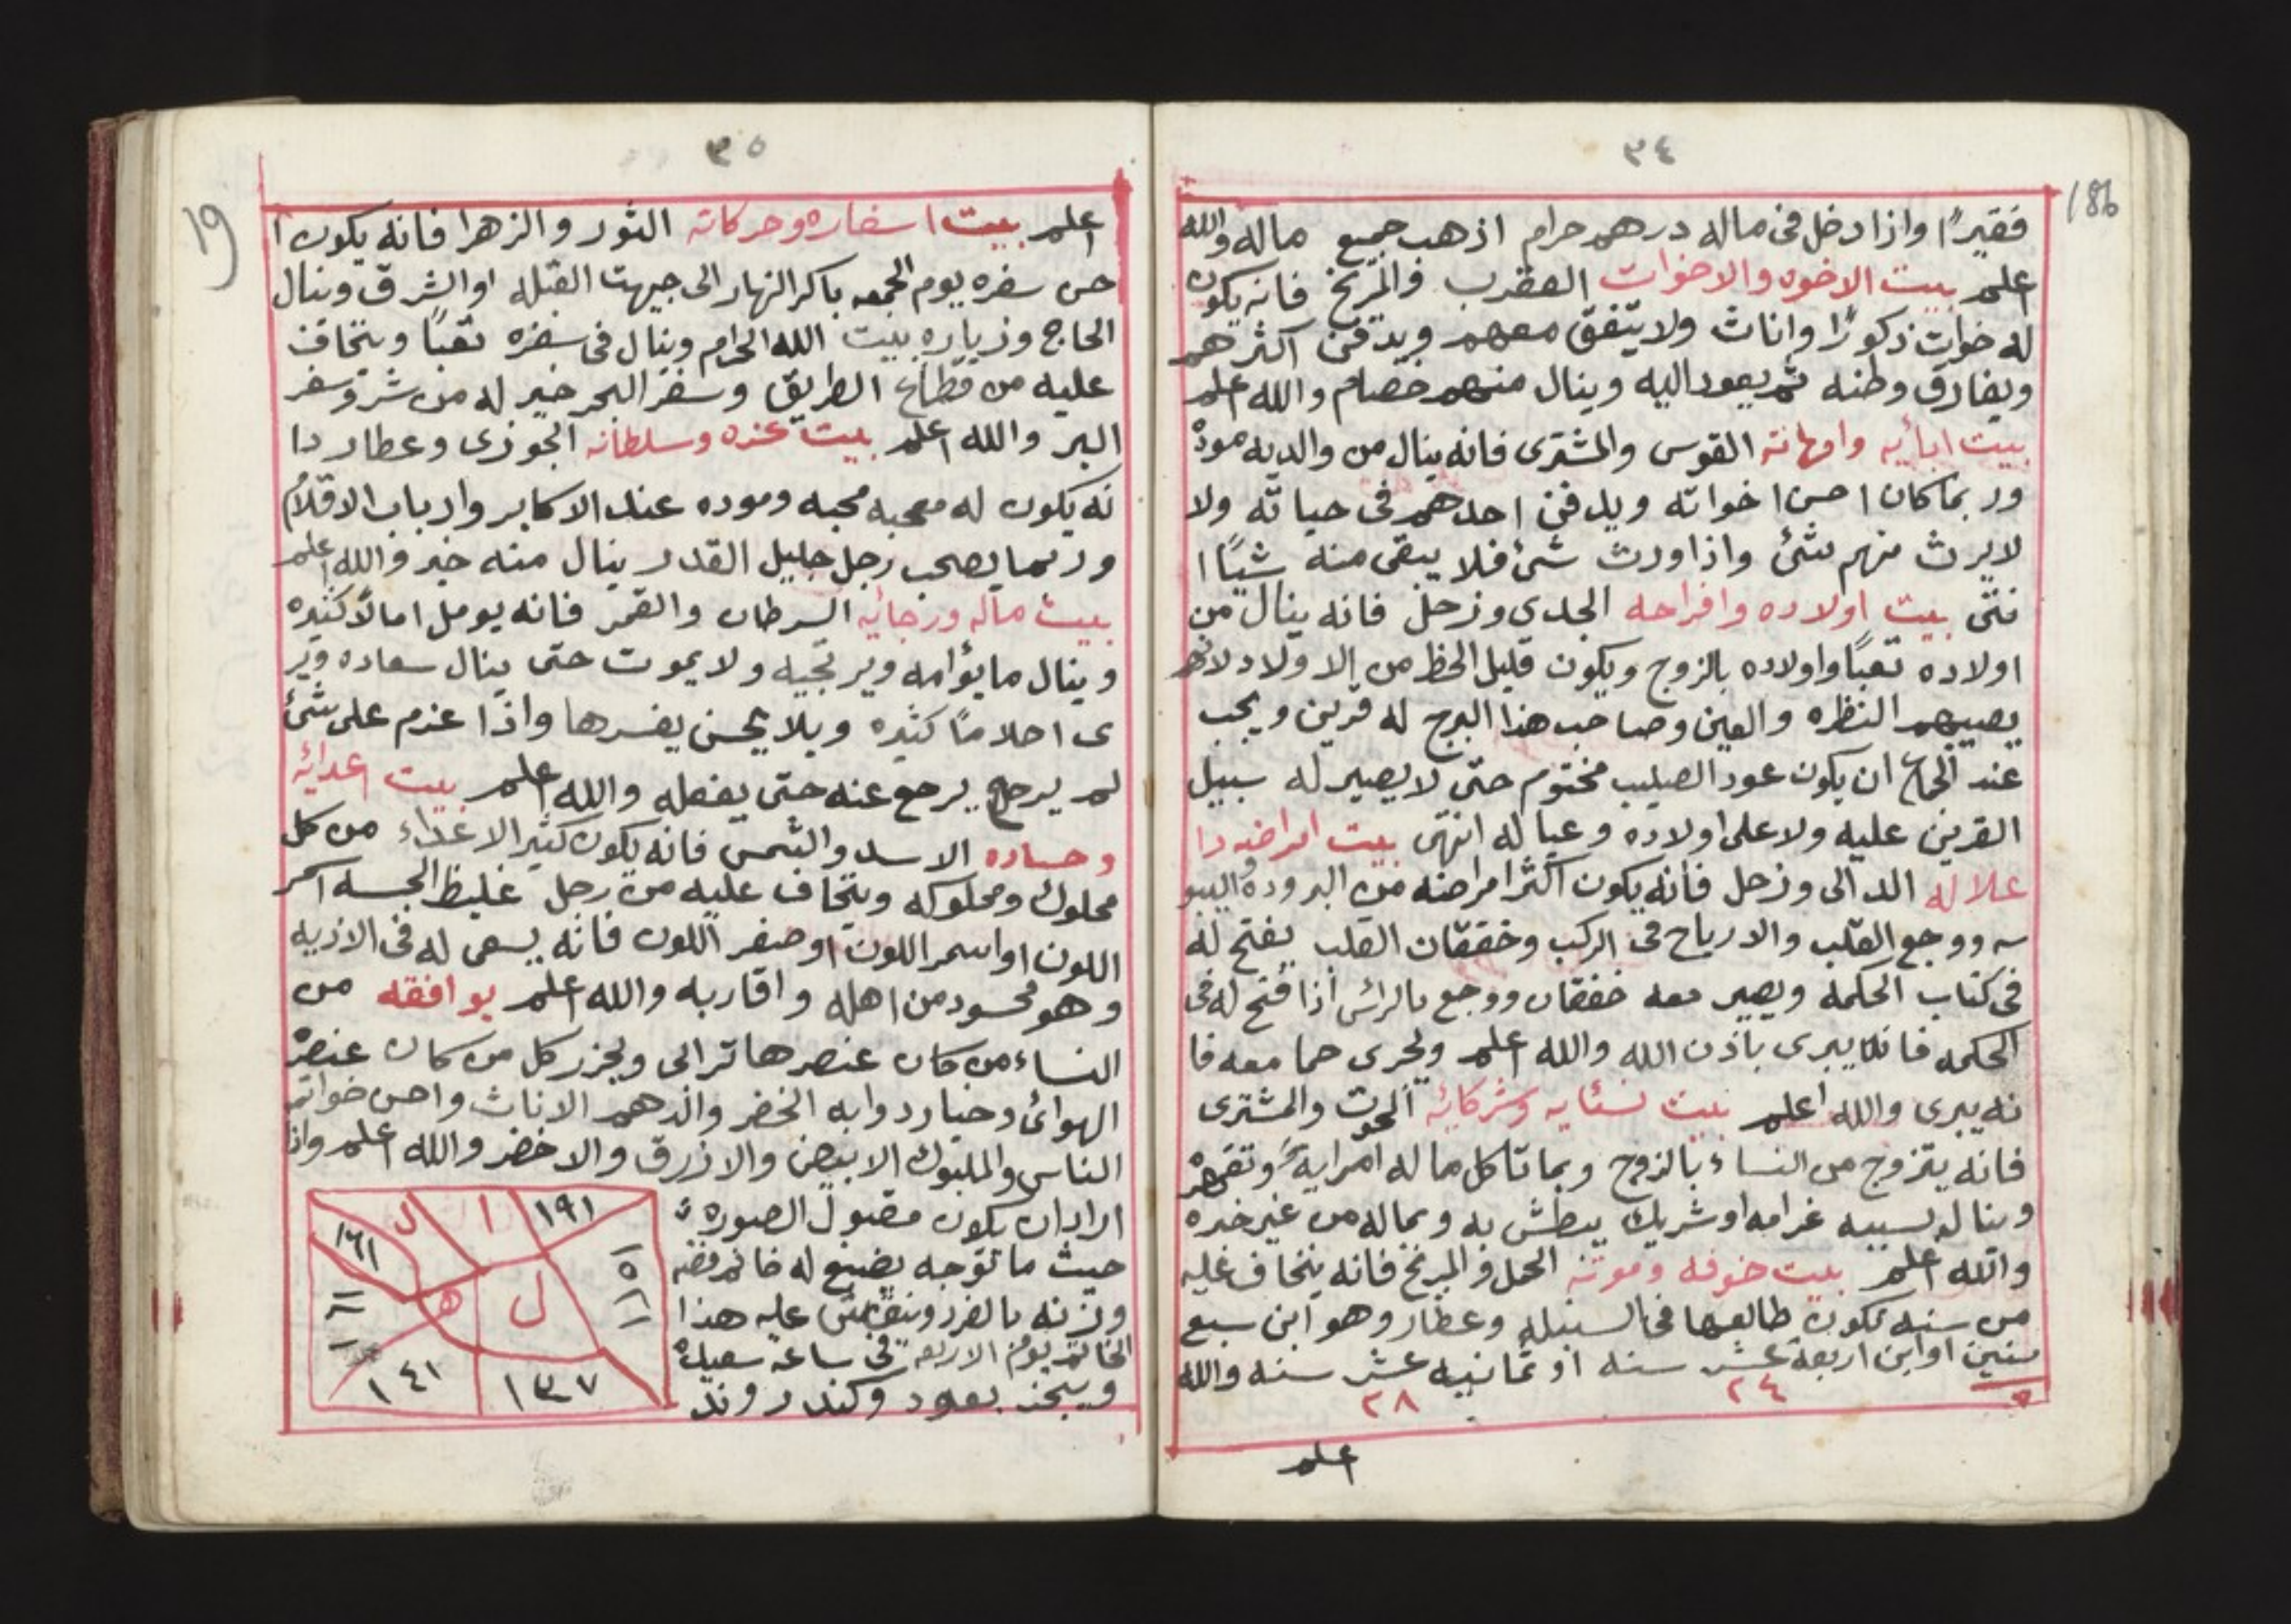 ٣٤
18b
فقيرًا واذا دخل فى ماله درهم حرام اذهب جميع ماله والله
اعلم بيت الاخوه والاخوات العقرب والمريخ فانه يكون
له خوات ذكورًا واناث ولا يتفق معهم ويدفن اكثرهم
ويفارق وطنه ثم يعود اليه وينال منهم خصام والله اعلم
بيت ابائيه وامهاته القوس والمشترى فانه ينال من والديه موده
وربما كان احسن اخواته ويدفن احدهم فى حياته ولا
لايرث منهم شئ واذا ورث شئ فلا يبقى منه شيًا ا
نتى بيت اولاده وافراحه الجدي وزحل فانه ينال من
اولاده تعبًا واولاده بالزوج ويكون قليل الحظ من الاولاد لانهم
يصيبهم النظره والعين وصاحب هذا البرج له قرين ويجب
عند الجماع ان يكون عود الصليب مختوم حتى لا يصير له سبيل
القرين عليه ولا على اولاده وعياله انتهى بيت امراضه دا
علاله الدالى وزحل فانه يكون اكثر امراضه من البروده واليبو
سه ووجع القلب والارياح فى الركب وخفقان القلب يفتح له
فى كتاب الحكمه ويصير معه خفقان ووجع بالرائس اذا فتح له فى
الحكمه فانه يبرى باذن الله والله اعلم ويجرى حما معه فا
نه يبرى والله اعلم بيت نسئايه وشركائه الحوت والمشترى
فانه يتزوج من النساء بالزوج وبما تاكل ماله امرايه وتقهره
وينا له بسببه غرامه او شريك يبطش به وبماله من غير خبره
والله اعلم بيت خوفه وموته الحمل والمريخ فانه يتخاف عليه
من سنه تكون طالعها فى السنبله وعطار وهو ابن سبع
سنين او ابن اربعة عشر سنه او ثمانيه عشر سنه والله
٢٤
٢٨
اعلم
٣٥
19
اعلم بيت اسفاره وحركاته الثور والزهرا فانه يكون ا
حسن سفره يوم الجمعه باكر النهار الى جيهت القبله او الشرق وينال
الحاج وزياره بيت الله الحرام وينال فى سفره تعبًا ويتخاف
عليه من قطاع الطريق وسفر البحر خير له من شر وسفر
البر والله اعلم بيت عزه وسلطانه الجوزى وعطارد دا
نه يكون له محبه وموده عند الاكابر وارباب الاقلام
وربما يصحب رجل جليل القدر ينال منه خير والله اعلم
بيت ماله ورجائيه السرطان والقمر فانه يومل امالًا كثيره
وينال ما يؤامه ويرتجيه ولا يموت حتى ينال سعاده وير
ى احلامًا كثيره وبلا يحسن يفسرها واذا عزم على شئ
لم يرجع يرجع عنه حتى يفعله والله اعلم بيت اعدائه
وحساده الاسد والشمس فانه يكون كثير الاعداء من كل
مملوك ومملوكه ويتخاف عليه من رجل غليظ الجسه اسمر
اللون او اسمر اللون او صفر اللون فانه يسعى له فى الازيه
وهو محسود من اهله واقاربه والله اعلم يوافقه من
النساء من كان عنصرها ترابى ويحزر كل من كان عنصره
الهوائ وخيار دوابه الخضر والدهم الاناث واحسن خواتم
الناس والملبوك الابيض والازرق والاخضر والله اعلم واذ
اراد ان يكون مقبول الصوره
حيث ما توجه يضيغ له خاتم فضه
وزنه بالفرد وينقش عليه هذا
الخاتم يوم الاربعه فى ساعه سعيده
ويبخر بعود وكندر وند
١٩١
ا
ل
١٦١
ل
ه
١٤١
١٣٧